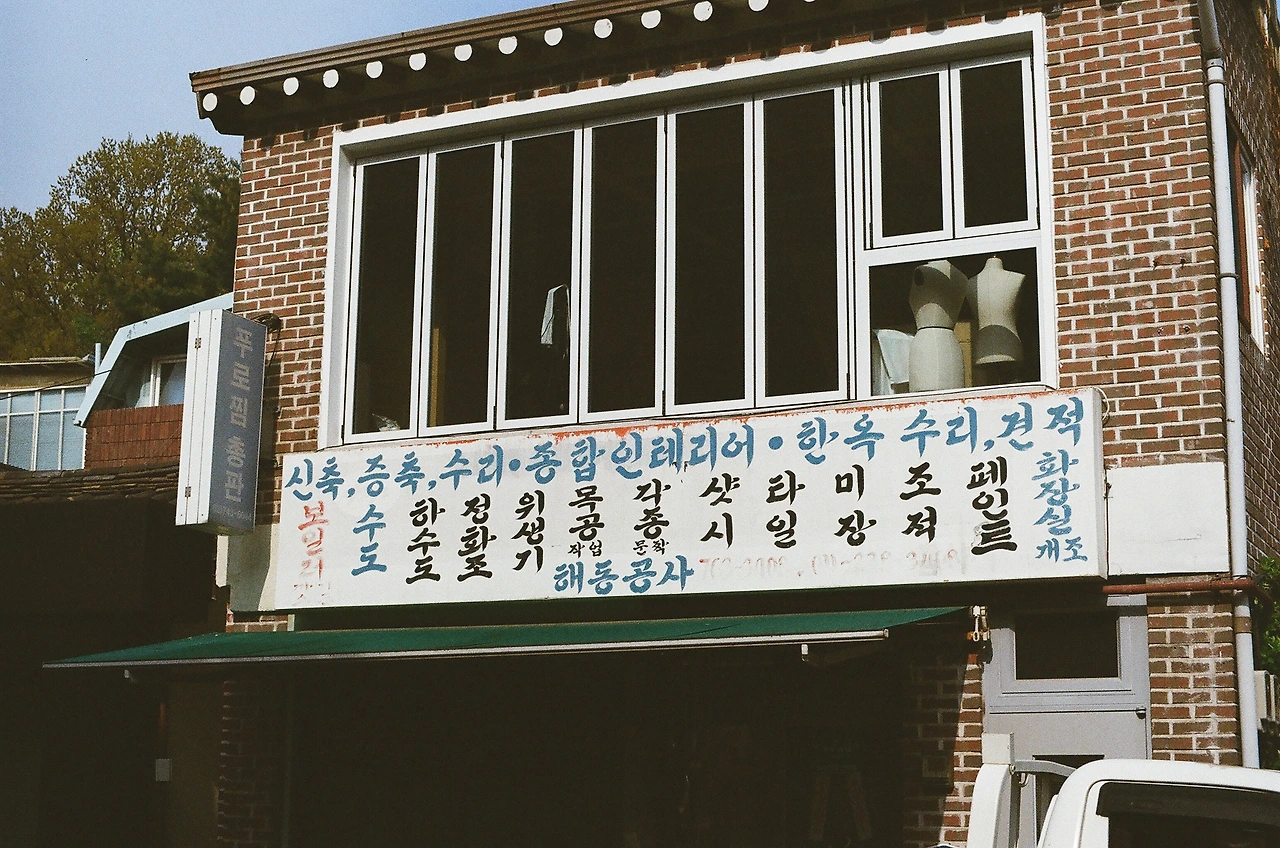 푸로찜 총판
신축,증축,수리•종합인테리어•한옥 수리,견적
보일러
수도
하수도
정화조
위생기
목공
작업
각종
문짝
샷시
타일
미장
조적
페인트
화장실
개조
해동공사